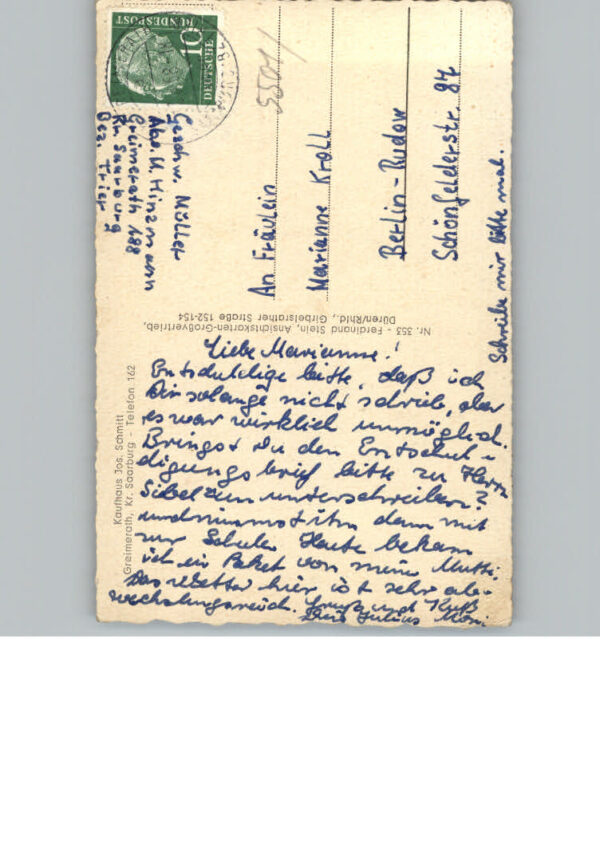 Liebe Marianne!
Entschuldige bitte, daß ich
Dir solange nicht schrieb, aber
es war wirklich unmöglich.
Bringst Du den Entschul-
digungsbrief bitte zu Herrn
zum unterschreiben?
und nimmst ihn dann mit
zur Schule. Heute bekam
ich ein Paket von meine Mutti.
Das Wetter hier ist sehr ab-
wechslungsreich. Gruß und Kuß
Julius
Schreibe mir bitte mal.
An Fräulein
Marianne Kroll
Berlin-Rudow
Schönfelderstr. 87
Geschw. Müller
Abs. H. Hinzmann
Greimerath 188
Kr. Saarburg
Bez. Trier
DEUTSCHE
BUNDESPOST
10
Nr. 353 - Ferdinand Stein, Ansichtskarten-Großvertrieb,
Düren/Rhld., Girbelsrather Straße 152-154
Kaufhaus Jos. Schmitt
Greimerath, Kr. Saarburg - Telefon 162